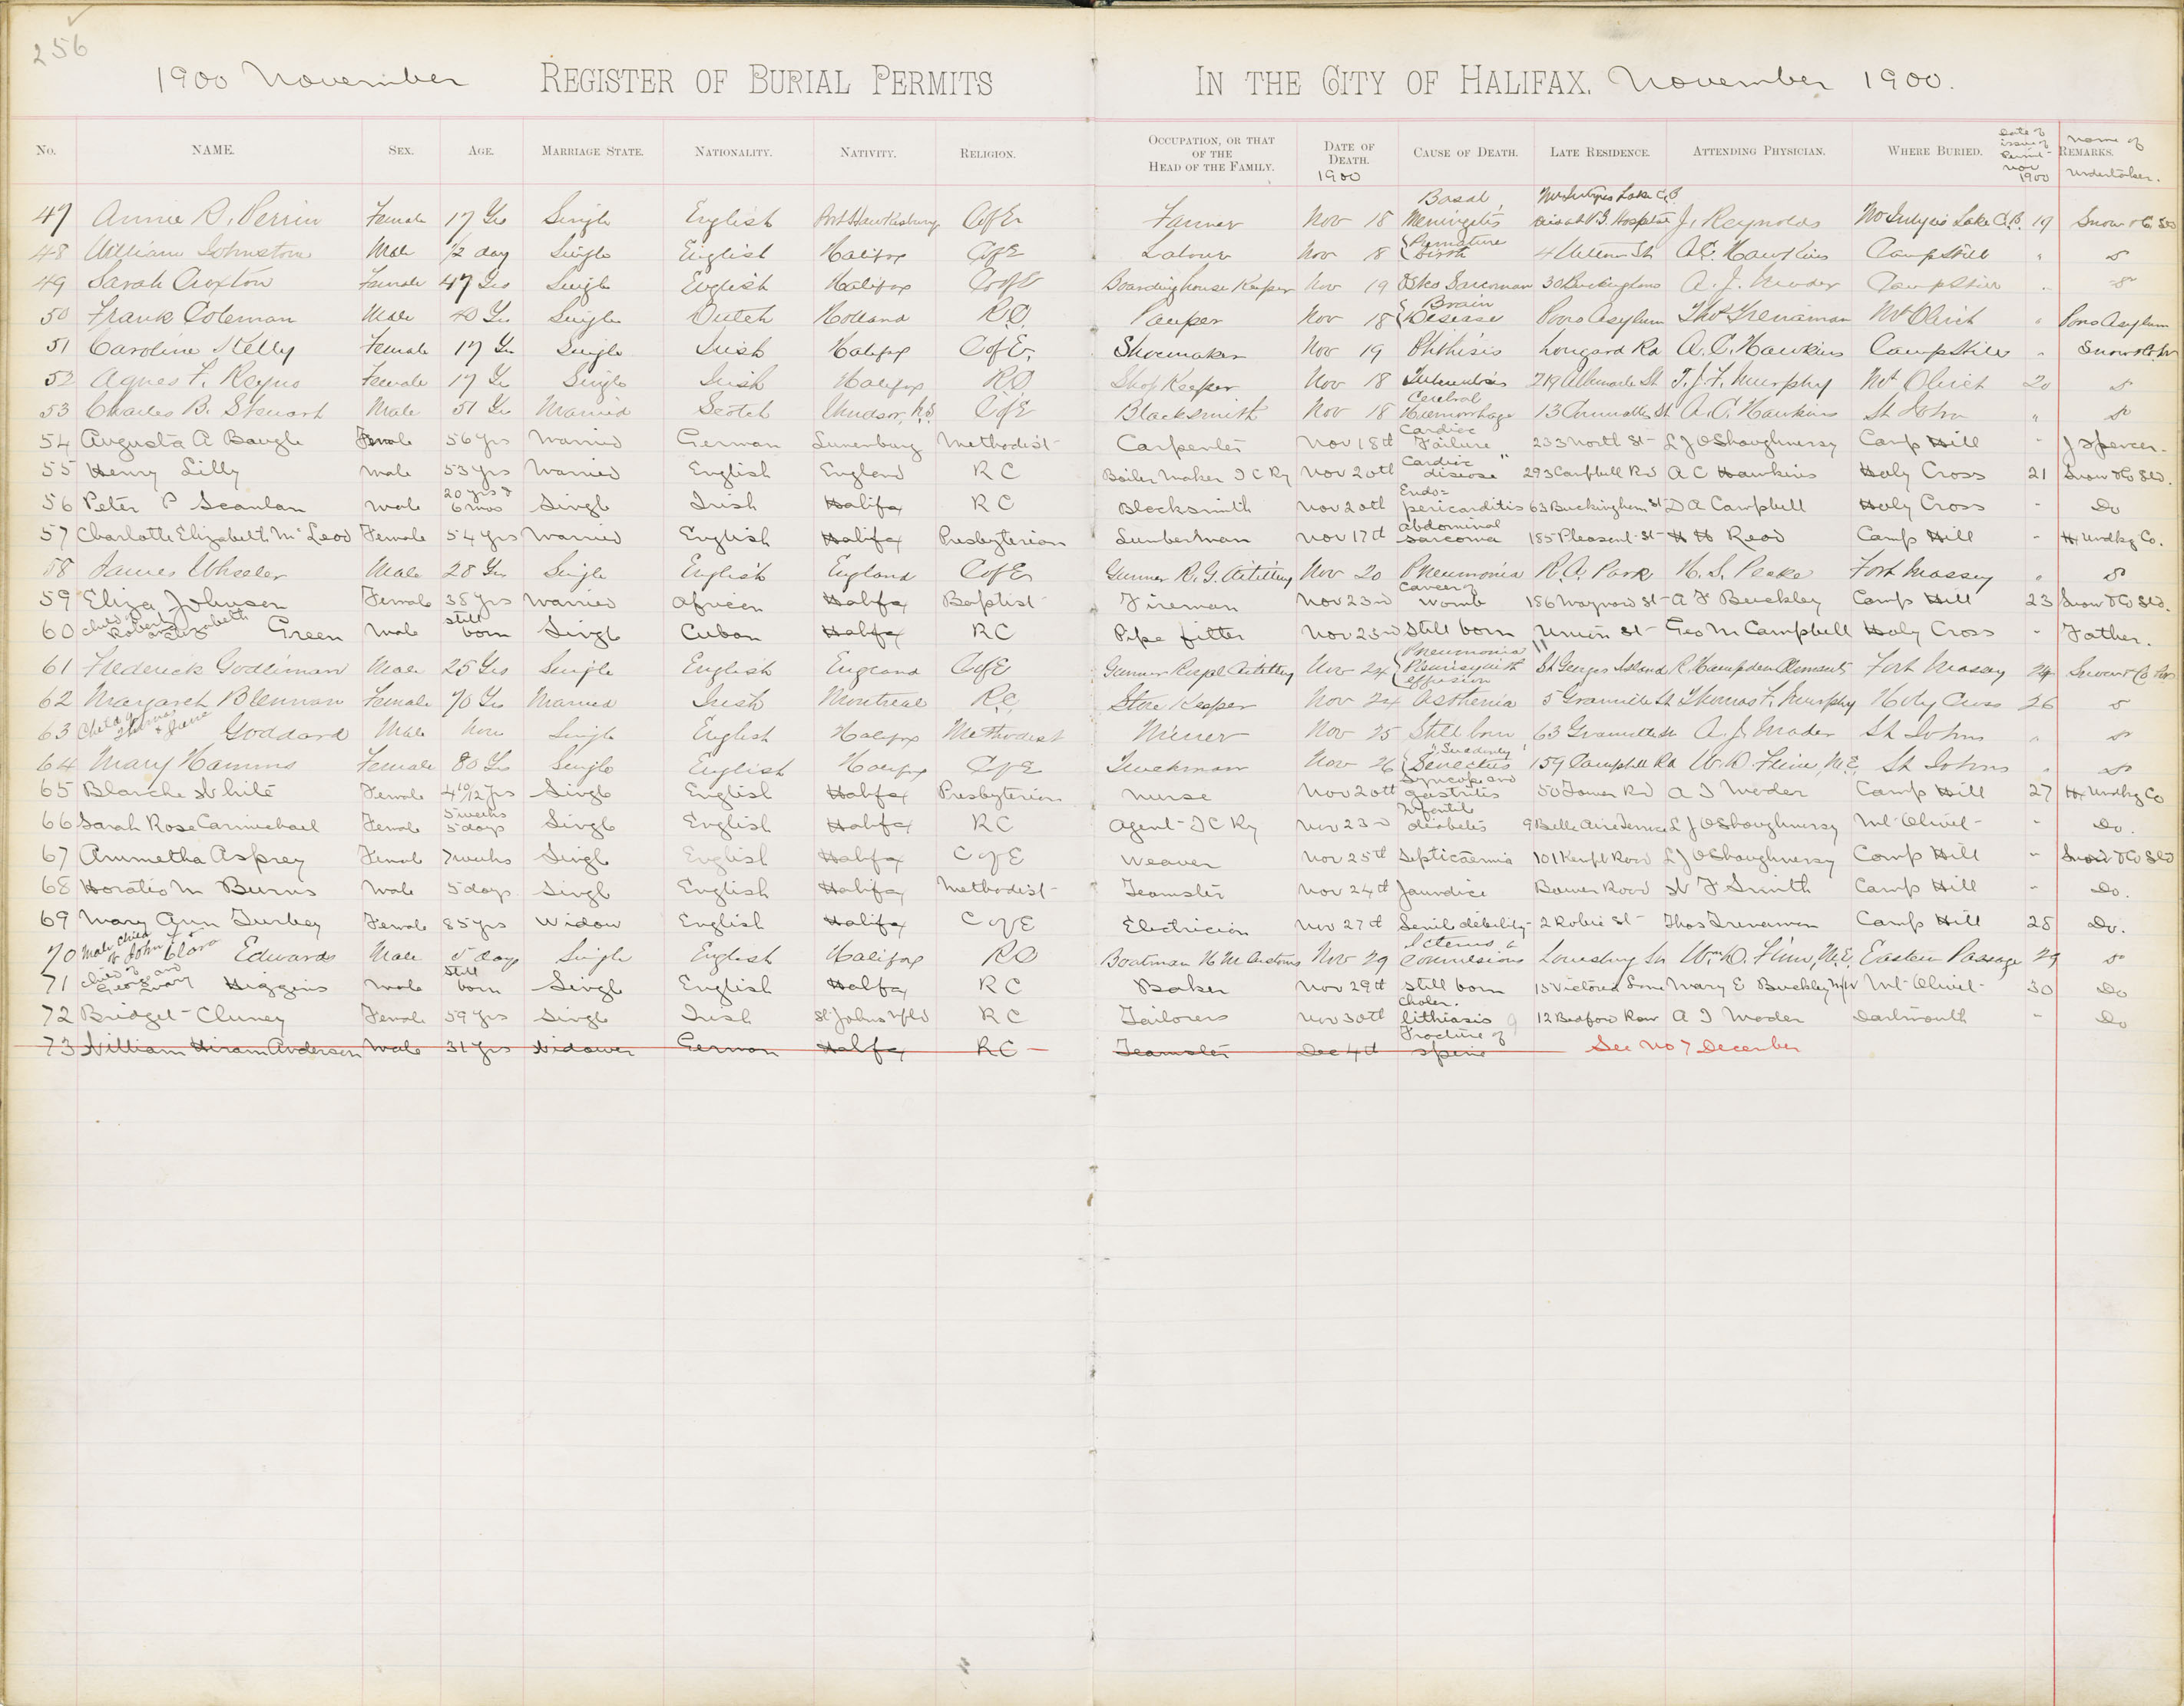 256
1900 November REGISTER OF BURIAL PERMITS IN THE CITY OF HALIFAX. November 1900.
No. NAME. SEX. AGE. MARRIAGE STATE. NATIONALITY. NATIVITY. RELIGION. OCCUPATION, OR THAT OF THE HEAD OF THE FAMILY. DATE OF DEATH. 1900 CAUSE OF DEATH. LATE RESIDENCE. ATTENDING PHYSICIAN. WHERE BURIED. Date of issue of Permit Nov 1900 REMARKS. Name of Undertaker.
47 Annie B. Perrin Female 17 Yrs Single English Port Hawkesbury C of E Farmer Nov 18 Basal Meningitis McIntyres Lake C.B. Died at V.G. Hospital J. Reynolds McIntyres Lake C.B. 19 Snow & Co Ltd
48 William Johnston Male 1/2 day Single English Halifax C of E Labour Nov 18 Premature birth A.C. Hawkins Camp Hill " Do
49 Sarah Croxton Female 47 Yrs Single English Halifax C of E Boardinghouse Keeper Nov 19 Osteo Sarcoma 30 Buckingham A. J. Mader Camp Hill " Do
50 Frank Coleman Male 40 Yrs Single Dutch Holland R.C. Pauper Nov 18 Brain Disease Poors Asylum Thos Trenaman Mt Olivet " Poors Asylum
51 Caroline Kelly Female 17 Yrs Single Irish Halifax C of E. Shoemaker Nov 19 Phthisis Longard Rd A.C. Hawkins Camp Hill " Snow & Co
52 Agnes F. Keyno Female 17 Yrs Single Irish Halifax RC Shop Keeper Nov 18 Tuberculosis 219 Albemarle St T.J.F. Murphy Mt Olivet 20 Do
53 Charles B. Stewart Male 51 Yrs Married Scotch Windsor, N.S. C of E Blacksmith Nov 18 Cerebral Haemorrhage 13 Cunnards St A.C. Hawkins St John " Do
54 Augusta A Baugle Female 56 yrs Married German Lunenburg Methodist Carpenter Nov 18th Cardiac Failure 233 North St L J O'Shaughnessy Camp Hill " J Spencer
55 Henry Lilly Male 53 yrs Married English England RC Boiler Maker I C Ry Nov 20th Cardiac disease 293 Campbell Rd A C Hawkins Holy Cross 21 Snow & Co Ltd.
56 Peter P Scanlan Male 20 yrs & 6 mos Single Irish Halifax RC Blacksmith Nov 20th Endo-pericarditis 63 Buckingham St D A Campbell Holy Cross " Do
57 Charlotte Elizabeth McLeod Female 54 yrs Married English Halifax Presbyterian Lumberman Nov 17th abdominal sarcoma 185 Pleasant St H H Read Camp Hill " H. Undkg Co.
58 James Wheeler Male 28 Yrs Single English England C of E Gunner R. G. Artillery Nov 20 Pneumonia R.A. Park H. S. Peake Fort Massey " Do
59 Eliza Johnson Female 38 yrs Married African Halifax Baptist Fireman Nov 23rd Cancer of womb 156 Maynard St A F Buckley Camp Hill 23 Snow & Co Ltd.
60 Child of Robert & Elizabeth Green Male Still born Single Cuban Halifax RC Pipe fitter Nov 23rd Still born Union St Geo M Campbell Holy Cross " Father.
61 Frederick Godliman Male 25 Yrs Single English England C of E Gunner Royal Artillery Nov 24 Pneumonia Pleurisy with effusion St Georges Island R. Hampden Clements Fort Massey 24 Snow & Co
62 Margaret Blennan Female 70 Yrs Married Irish Montreal R.C. Store Keeper Nov 24 Asthenia 5 Granville St Thomas F. Murphy Holy Cross 26 Do
63 Child of Thomas & Jane Goddard Male None Single English Halifax Methodist Miner Nov 25 Still born 63 Granville St A. J. Mader St Johns " Do
64 Mary Hamms Female 80 Yrs Single English Halifax C of E Truckman Nov 26 "Suddenly" Senectus 159 Campbell Rd W.D. Finn, M.E. St Johns " Do
65 Blanche White Female 4 10/12 yrs Single English Halifax Presbyterian Nurse Nov 20th Syncope and gastritis 50 Tower Rd A I Mader Camp Hill 27 H. Undkg Co
66 Sarah Rose Carmichael Female 5 weeks 5 days Single English Halifax RC Agent I C Ry Nov 23rd Infantile diabetes 9 Belle Aire Terrace L J O'Shaughnessy Mt Olivet " Do.
67 Ammetha Asprey Female 7 weeks Single English Halifax C of E Weaver Nov 25th Septicaemia 101 Kempt Road L J O'Shaughnessy Camp Hill " Snow & Co Ltd
68 Horatio M Burns Male 5 days Single English Halifax Methodist Teamster Nov 24th Jaundice Bower Road W F Smith Camp Hill " Do.
69 Mary Ann Turbey Female 85 yrs Widow English Halifax C of E Electrician Nov 27th Senile debility 2 Robie St Thos Trenaman Camp Hill 28 Do.
70 Male Child of John & Clara Edwards Male 5 days Single English Halifax RC Boatman H M Customs Nov 29 Icterus & Convulsions Louisburg St Wm. D. Finn, M.E. Eastern Passage 29 Do
71 Child of George and Mary Higgins Male Still born Single English Halifax RC Baker Nov 29th still born 15 Victoria Lane Mary E Buckley M/W Mt Olivet 30 Do
72 Bridget Cluney Female 59 yrs Single Irish St Johns Nfld RC Tailoress Nov 30th cholelithiasis 12 Bedford Row A I Mader Dartmouth " Do
73 William Hiram Anderson Male 31 yrs Widower German Halifax RC Teamster Dec 4th Fracture of spine See No 7 December